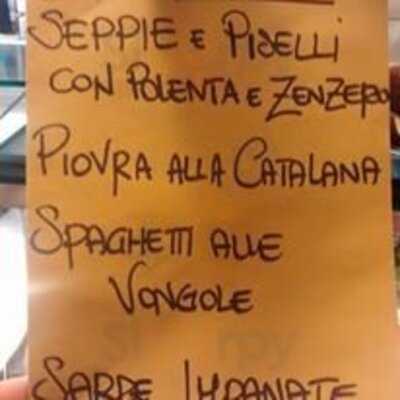 SEPPIE E PISELLI
CON POLENTA E ZENZERO
PIOVRA ALLA CATALANA
SPAGHETTI ALLE
VONGOLE
SARDE IMPANATE